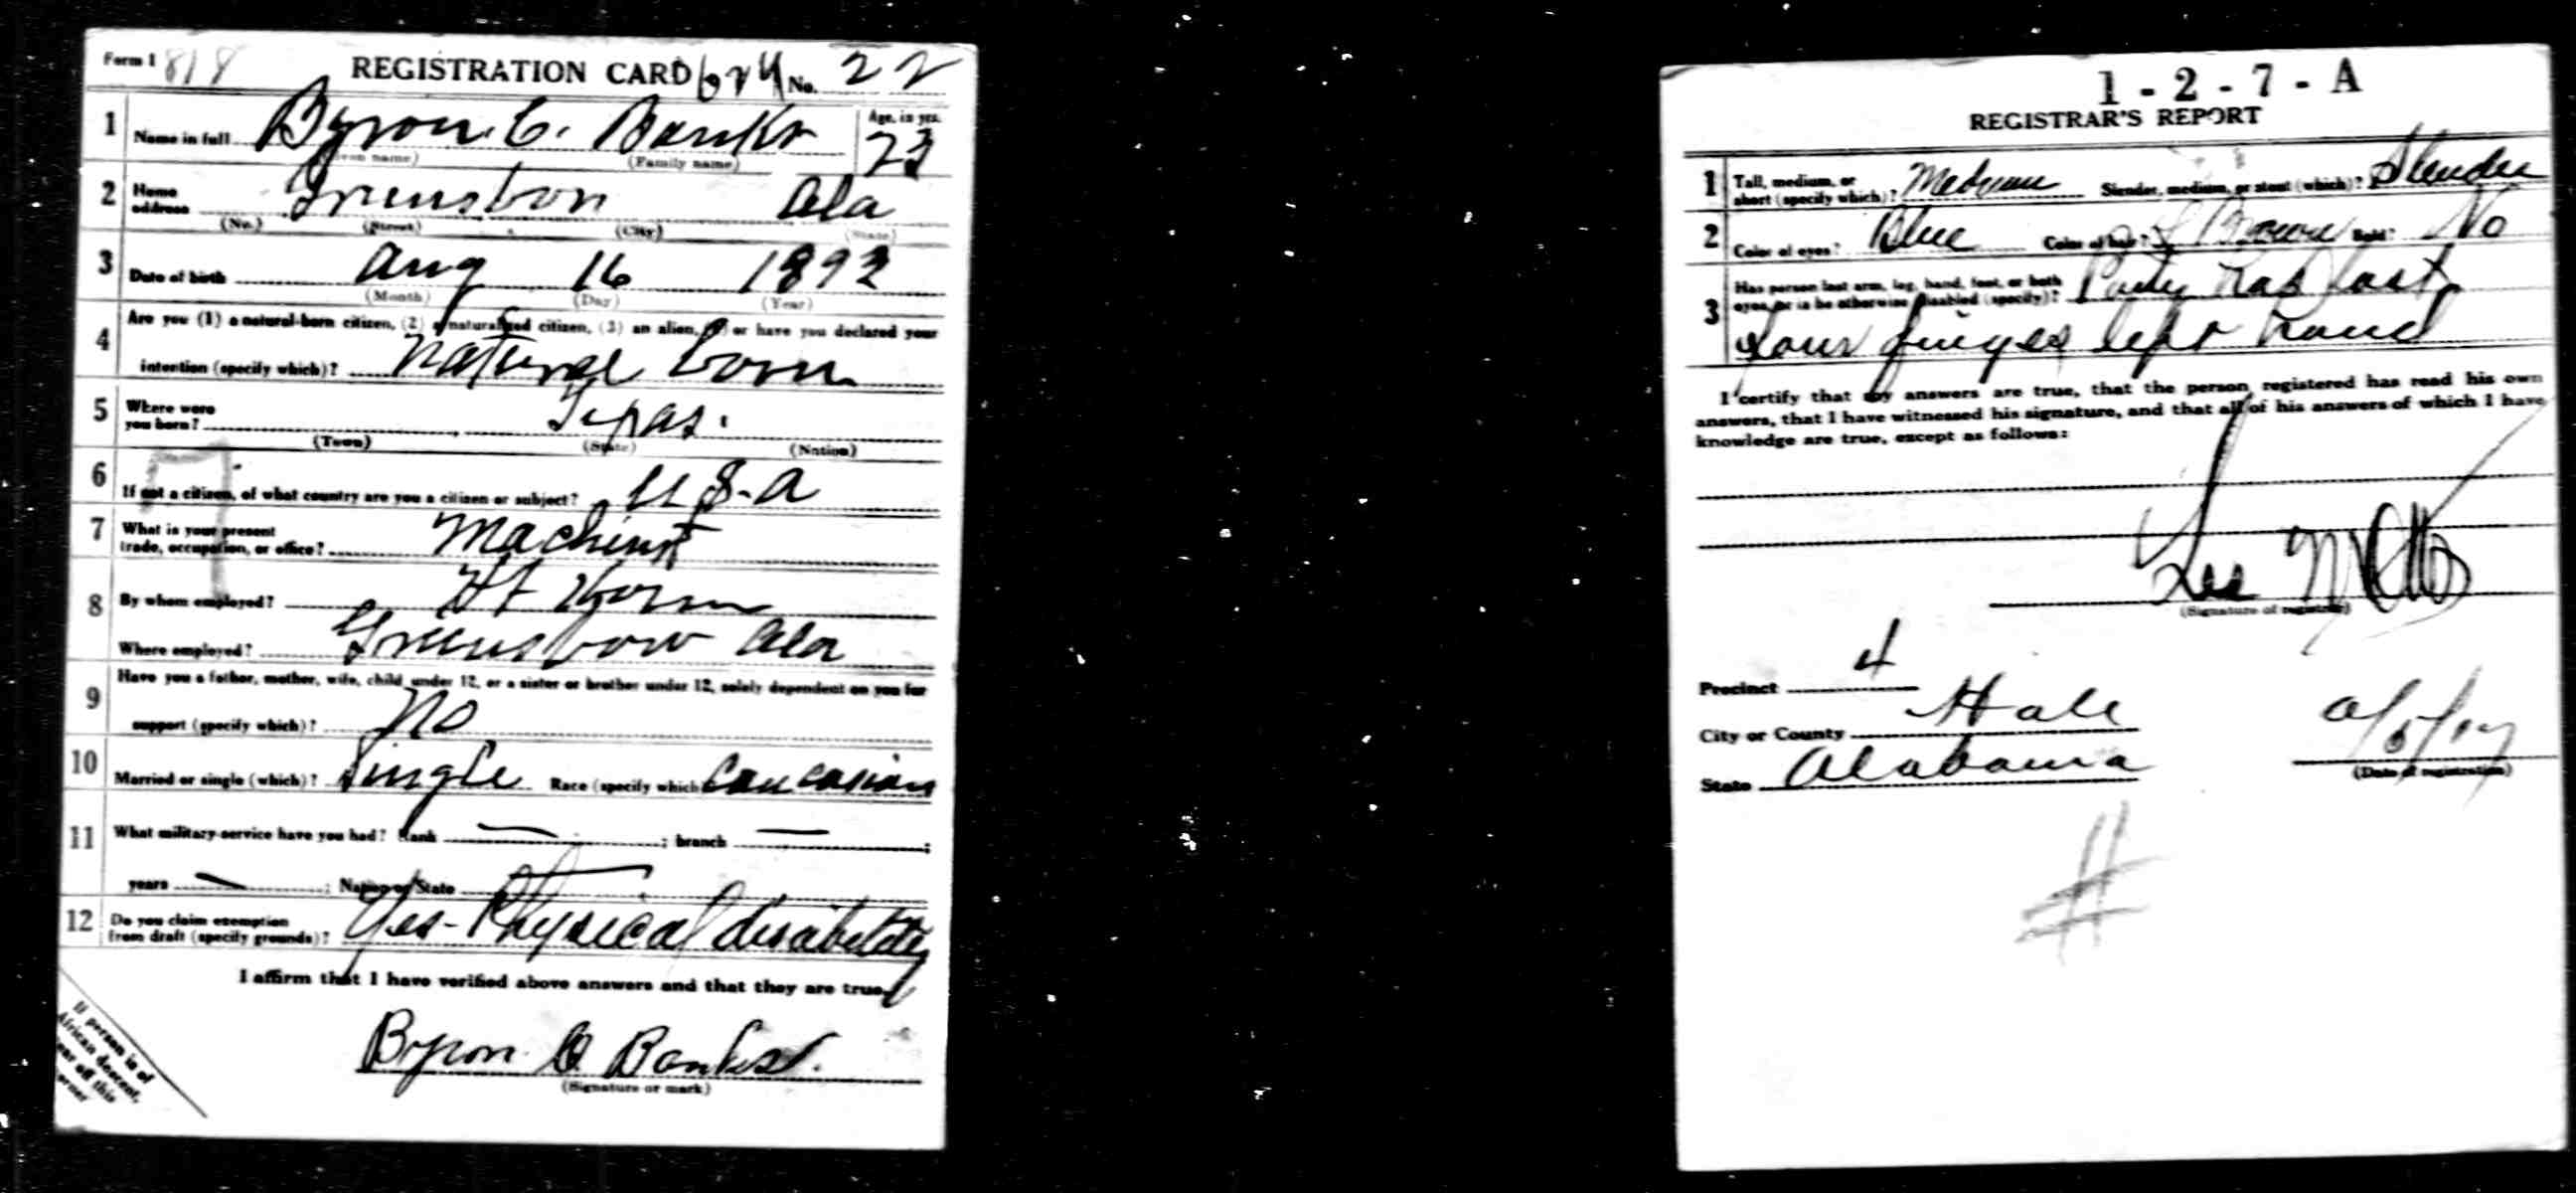 Form 1 818 REGISTRATION CARD 624 No. 22
1 Name in full Byron. C. Banks Age, in yrs. 23
(Given name) (Family name)
2 Home address Greensboro Ala
(No.) (Street) (City) (State)
3 Date of birth Aug 16 1893
(Month) (Day) (Year)
4 Are you (1) a natural-born citizen, (2) a naturalized citizen, (3) an alien, (4) or have you declared your
intention (specify which)? Natural born
5 Where were you born? Texas.
(Town) (State) (Nation)
6 If not a citizen, of what country are you a citizen or subject? U S. A
7 What is your present trade, occupation, or office? Machinist
8 By whom employed?
Where employed? Greensboro Ala
9 Have you a father, mother, wife, child under 12, or a sister or brother under 12, solely dependent on you for
support (specify which)? No
10 Married or single (which)? Single Race (specify which) Caucasian
11 What military service have you had? Rank — ; branch — ;
years — ; Nation or State —
12 Do you claim exemption from draft (specify grounds)? Yes - Physical disability
I affirm that I have verified above answers and that they are true.
Byron C. Banks.
(Signature or mark)
If person is of
African descent,
tear off this
corner
1 - 2 - 7 - A
REGISTRAR'S REPORT
1 Tall, medium, or short (specify which)? Medium Slender, medium, or stout (which)? Slender
2 Color of eyes? Blue Color of hair? Brown Bald? No
3 Has person lost arm, leg, hand, foot, or both eyes, or is he otherwise disabled (specify)? Party has lost
four finges left hand
I certify that my answers are true, that the person registered has read his own
answers, that I have witnessed his signature, and that all of his answers of which I have
knowledge are true, except as follows:
Lee
(Signature of registrar)
Precinct 4
City or County Hale
State Alabama
(Date of registration)